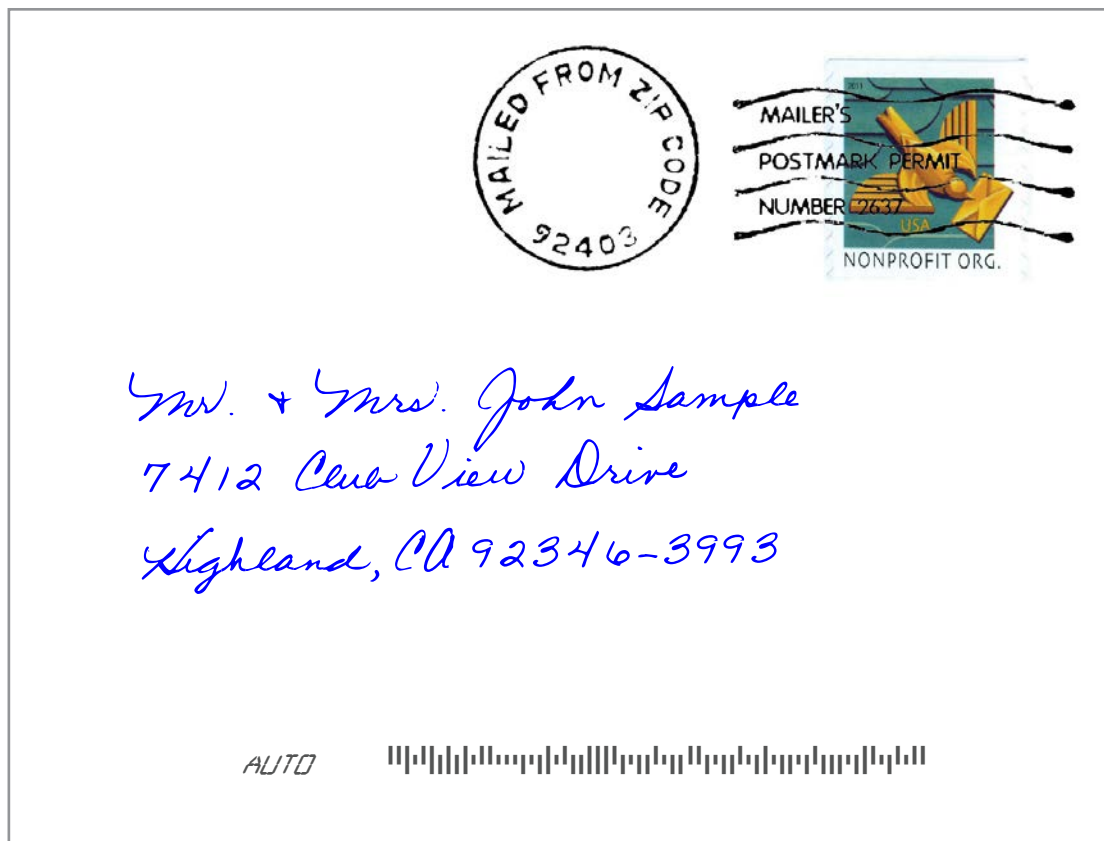 MAILED FROM ZIP CODE
92403
MAILER'S
POSTMARK PERMIT
NUMBER 2637
2011
USA
NONPROFIT ORG.
Mr. & Mrs. John Sample
7412 Club View Drive
Highland, CA 92346-3993
AUTO